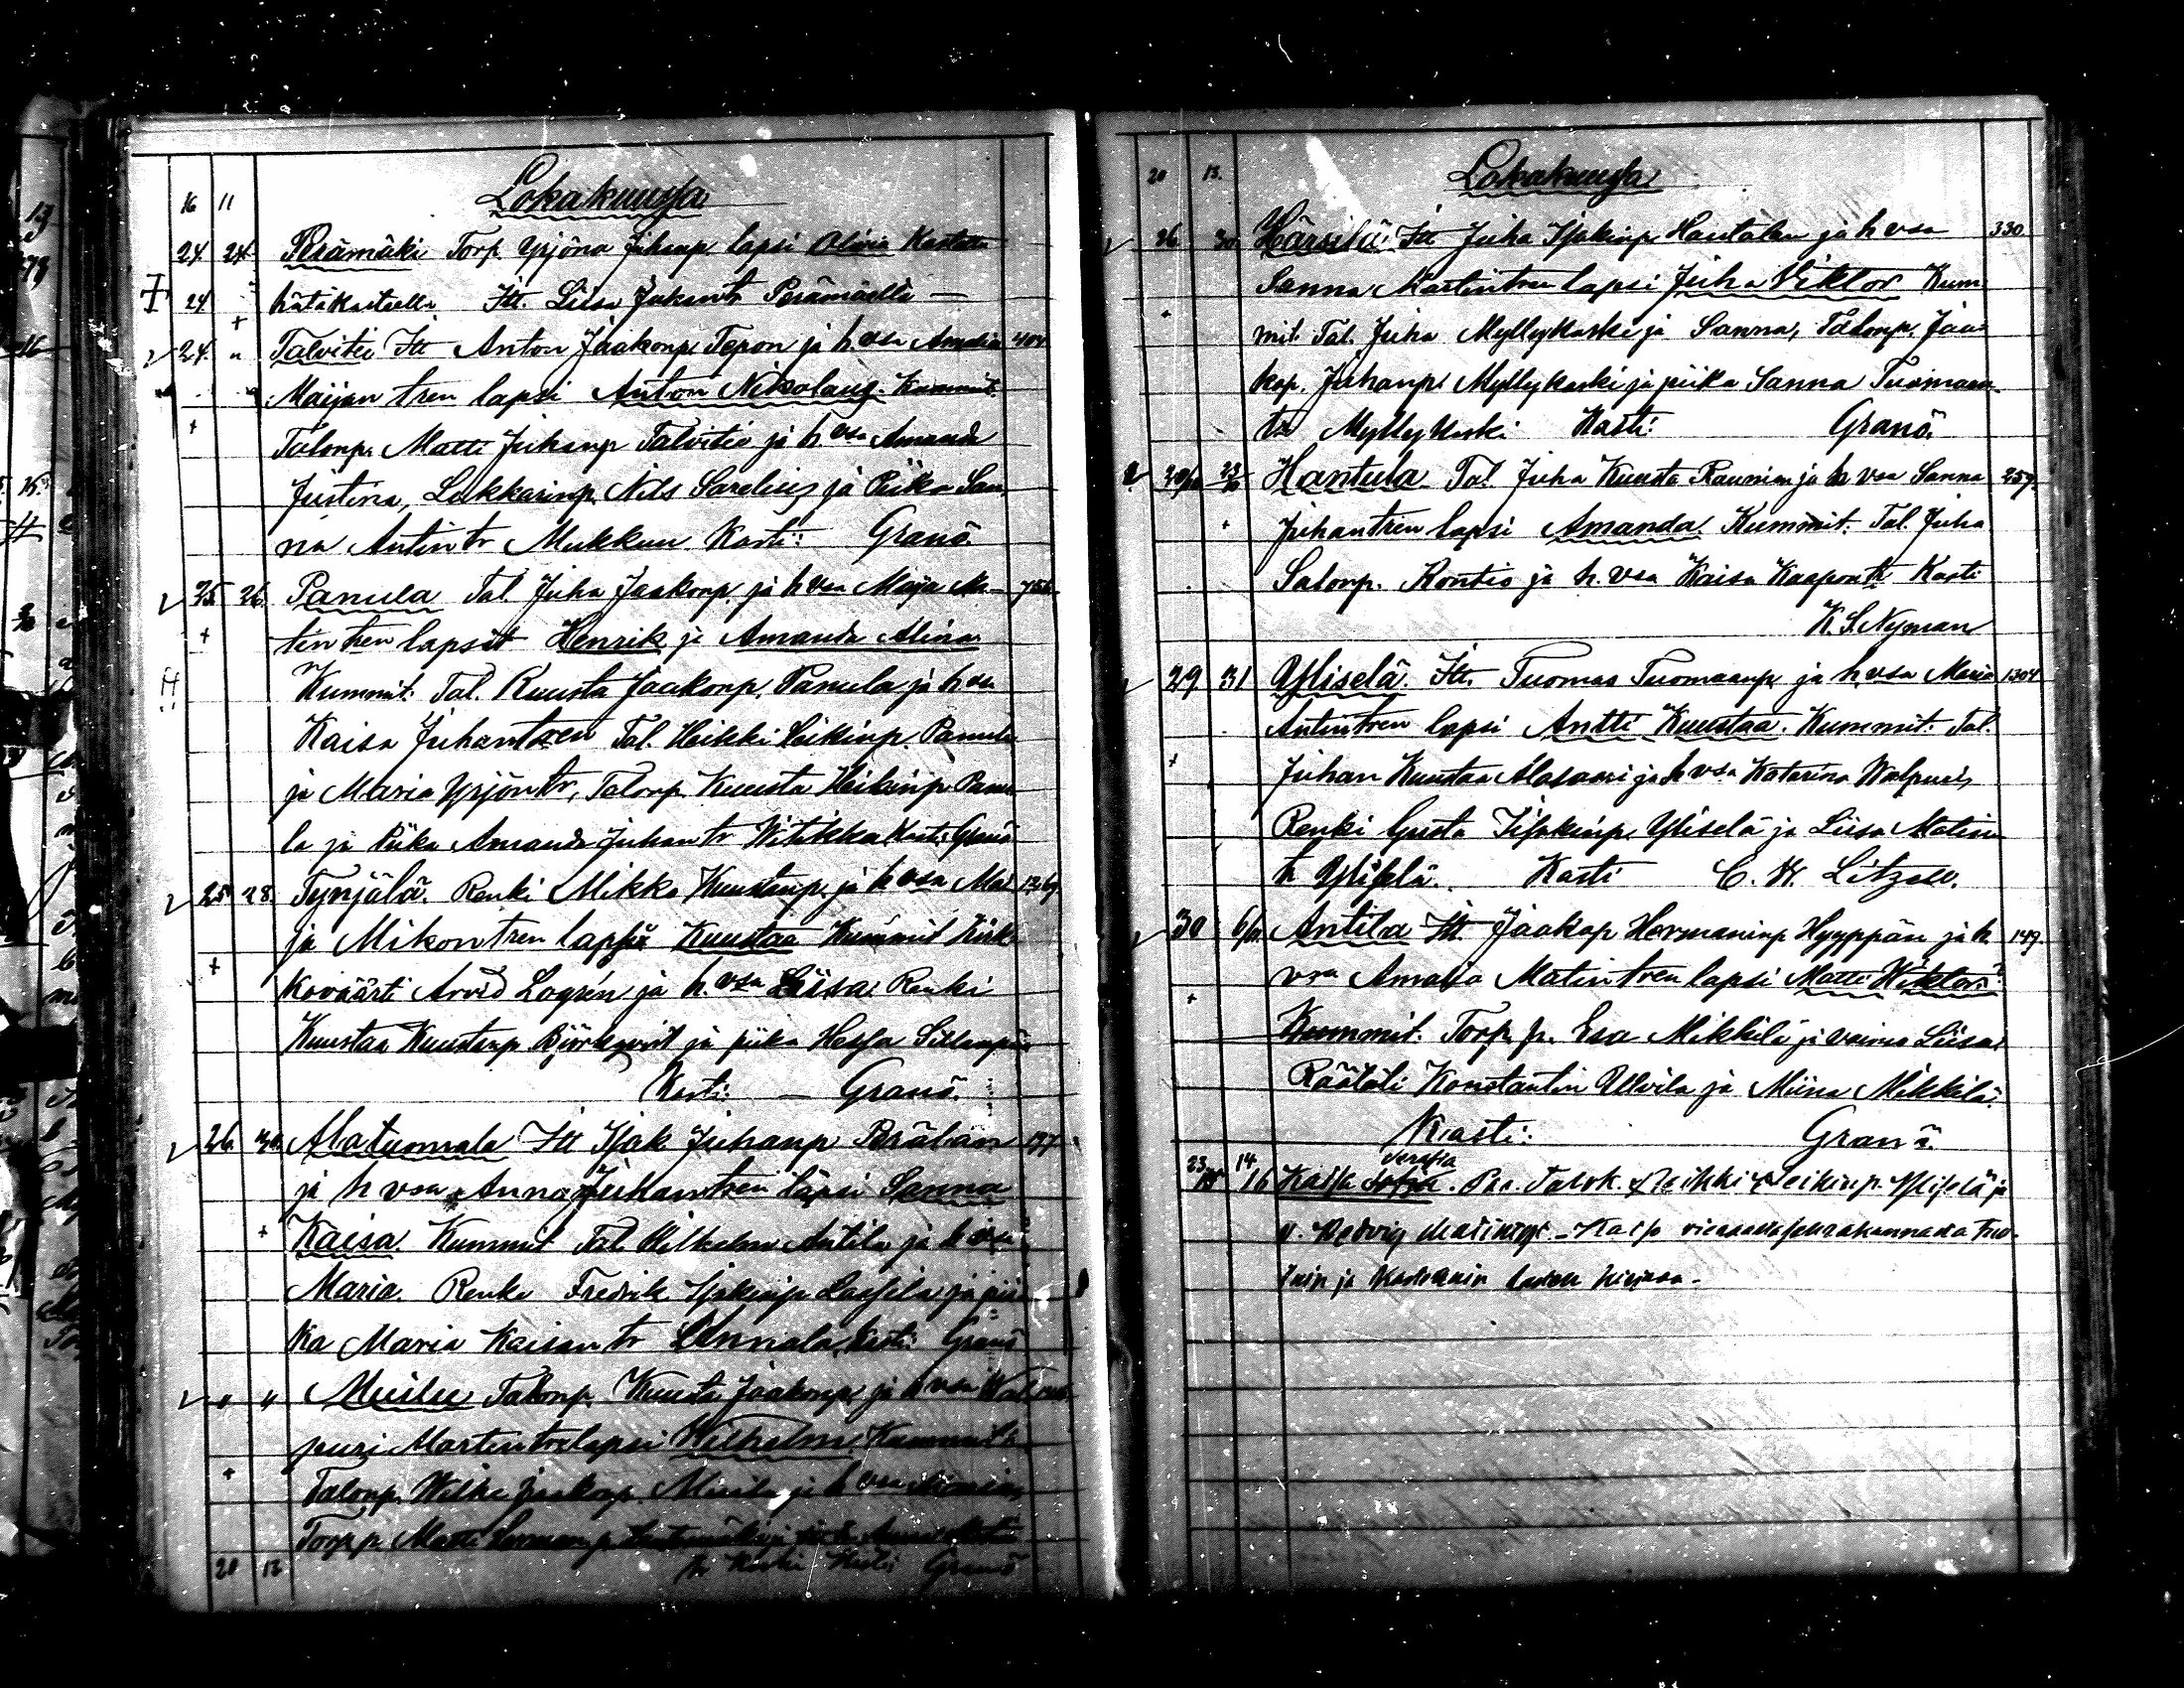 16 11 Lokakuussa
24. 24. Perämäki Torp. Yrjöna Juhanp. lapsi Olivia Kastettu
24 hätäkasteella. Itt. Liisa Jukantr Perämäeltä —
24. " Talvitie Itt Anton Jaakonp. Tepon ja h. vsa Amalia 404
Maijan tren lapsi Anton Nikolaus. Kummit.
Talonp. Matti Juhanp Talvitie ja h. vsa Amanda
Justina, Lukkarinp. Nils Sarelius ja Piika San
na Antintr Mukkuu Kasti: Granö.
25. 26. Panula Tal. Juha Jaakonp. ja h vsa Maija Ma-
tin tren lapset Henrik ja Amanda Alina
Kummit: Tal. Kuusta Jaakonp. Panula ja h vsa
Kaisa Juhantren Tal. Heikki Heikinp. Panula
ja Maria Yrjöntr, Talonp. Kuusta Heikinp. Panu
la ja Piika Amanda Juhantr Witikka Kasti: Granö
25 28. Tynjälä. Renki Mikko Kuustanp. ja h vsa Mai
ja Mikontren lapsi Kuustaa Kummit Kirk
kovääsrti Arvid Logrén ja h. vsa Liisa. Renki
Kuustaa Kuustanp Björkqvist ja piika Hessa Sillanpää
Kasti: — Granö.
26. 30. Alatuomala Itt Isak Juhanp Perälän 177
ja h vsa Anna Juhantren lapsi Sanna
Kaisa. Kummit Tal. Wilhelm Antila ja h vsa
Maria. Renki Fredrik Isakinp. Lassila ja pii
ka Maria Kaisantr Annala, Kasti: Granö
" " Muilu Talonp. Kuusta Jaakonp. ja h vsa Wal
puri Martintr lapsi Wilhelm. Kummit
Talonp. ja h vsa Maria
Torpp. Matti Hermanp.
Kasti: Granö
20 12
20 13. Lokakuussa
26 30. Härsilä. Itt Juha Isakinp. Hautalan ja h vsa 330
Sanna Martintren lapsi Juha Viktor Kum
mit. Tal. Juha Myllykoski ja Sanna, Talonp. Jaa
kop. Juhanp. Myllykoski ja piika Sanna Tuomaan
tr Myllykoski Kasti: Granö.
Hantula Tal Juha Kuusta Raunion ja h vsa Sanna 259.
Juhantren lapsi Amanda. Kummit. Tal. Juha
Salonp. Rontio ja h. vsa Kaisa Kaapontr Kasti
K. S. Nyman
29 31 Yliselä. Itt. Tuomas Tuomaanp. ja h. vsa Maria 1304
Antintren lapsi Antti Kuustaa. Kummit: Tal.
Juhan Kuustaa Alasaari ja h vsa Katarina Walpuri,
Renki Gusta Iisakinp. Yliselä ja Liisa Matin
tr Yliselä. Kasti C. W. Litzell.
30 6/11 Antila Itt. Jaakop Hermaninp Hyyppän ja h. 149.
vsa Amalia Matintren lapsi Matti Wiktori
Kummit. Torp. p. Esa Mikkilä ja vaimo Liisa.
Räätäli Konstantin Ulvila ja Miina Mikkilä.
Kasti: Granö.
23 14 Serafia
16 Kaisa Sofia. Talok. Heikki Heikinp. Yliselä ja
v. Hedvig